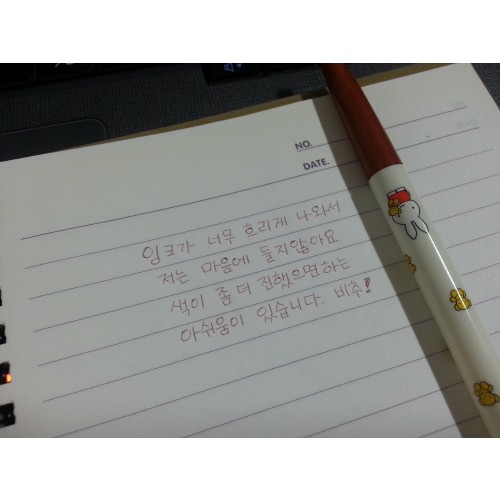 NO.
DATE.
잉크가 너무 흐리게 나와서
저는 마음에 들지않아요
색이 좀 더 진했으면하는
아쉬움이 있습니다. 비추!